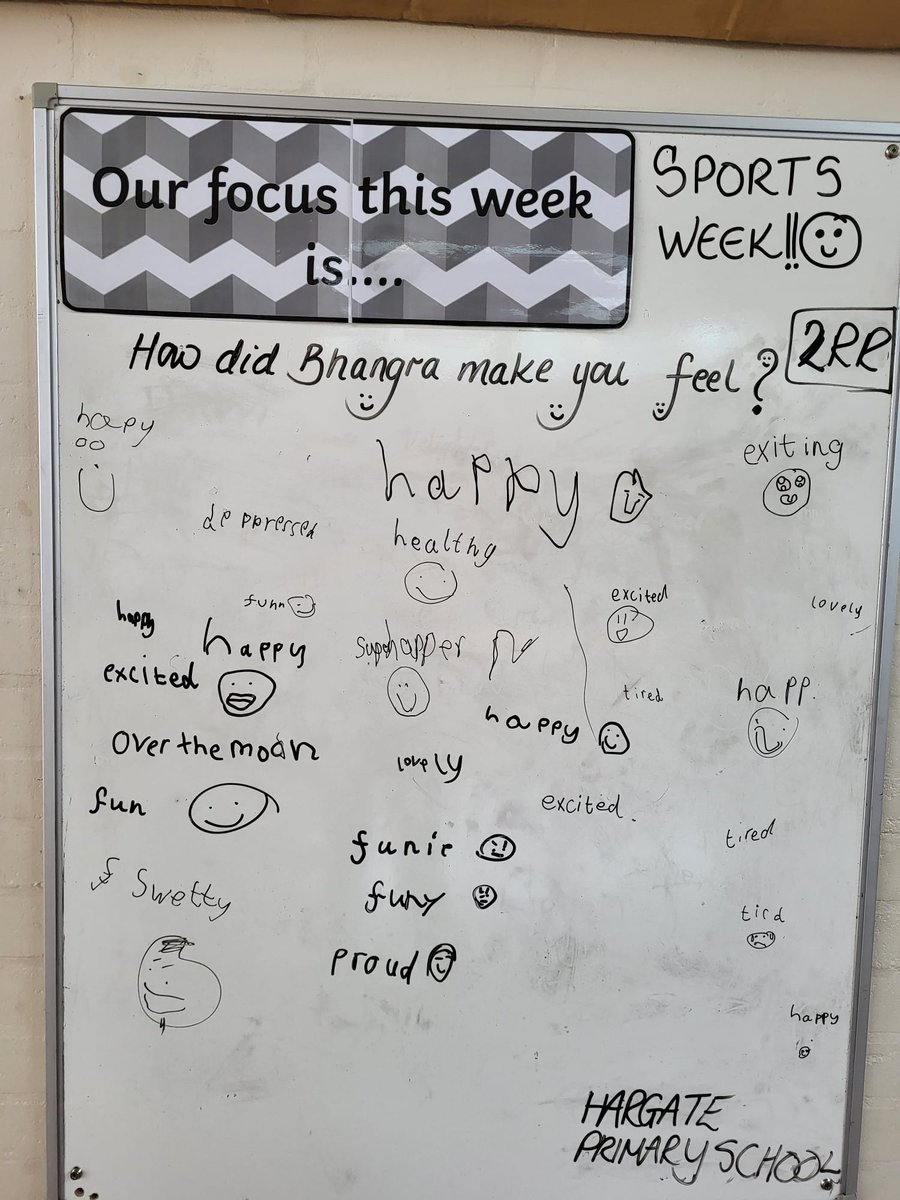 Our focus this week
is....
SPORTS
WEEK!!
How did Bhangra make you feel?
2RR
hapy
happy
exiting
depressed
healthy
funn
excited
lovely
happy
happy
excited
tired
happ.
happy
Over the moan
lovely
fun
excited.
tired
funie
Swetty
funy
tird
proud
happy
HARGATE
PRIMARY SCHOOL